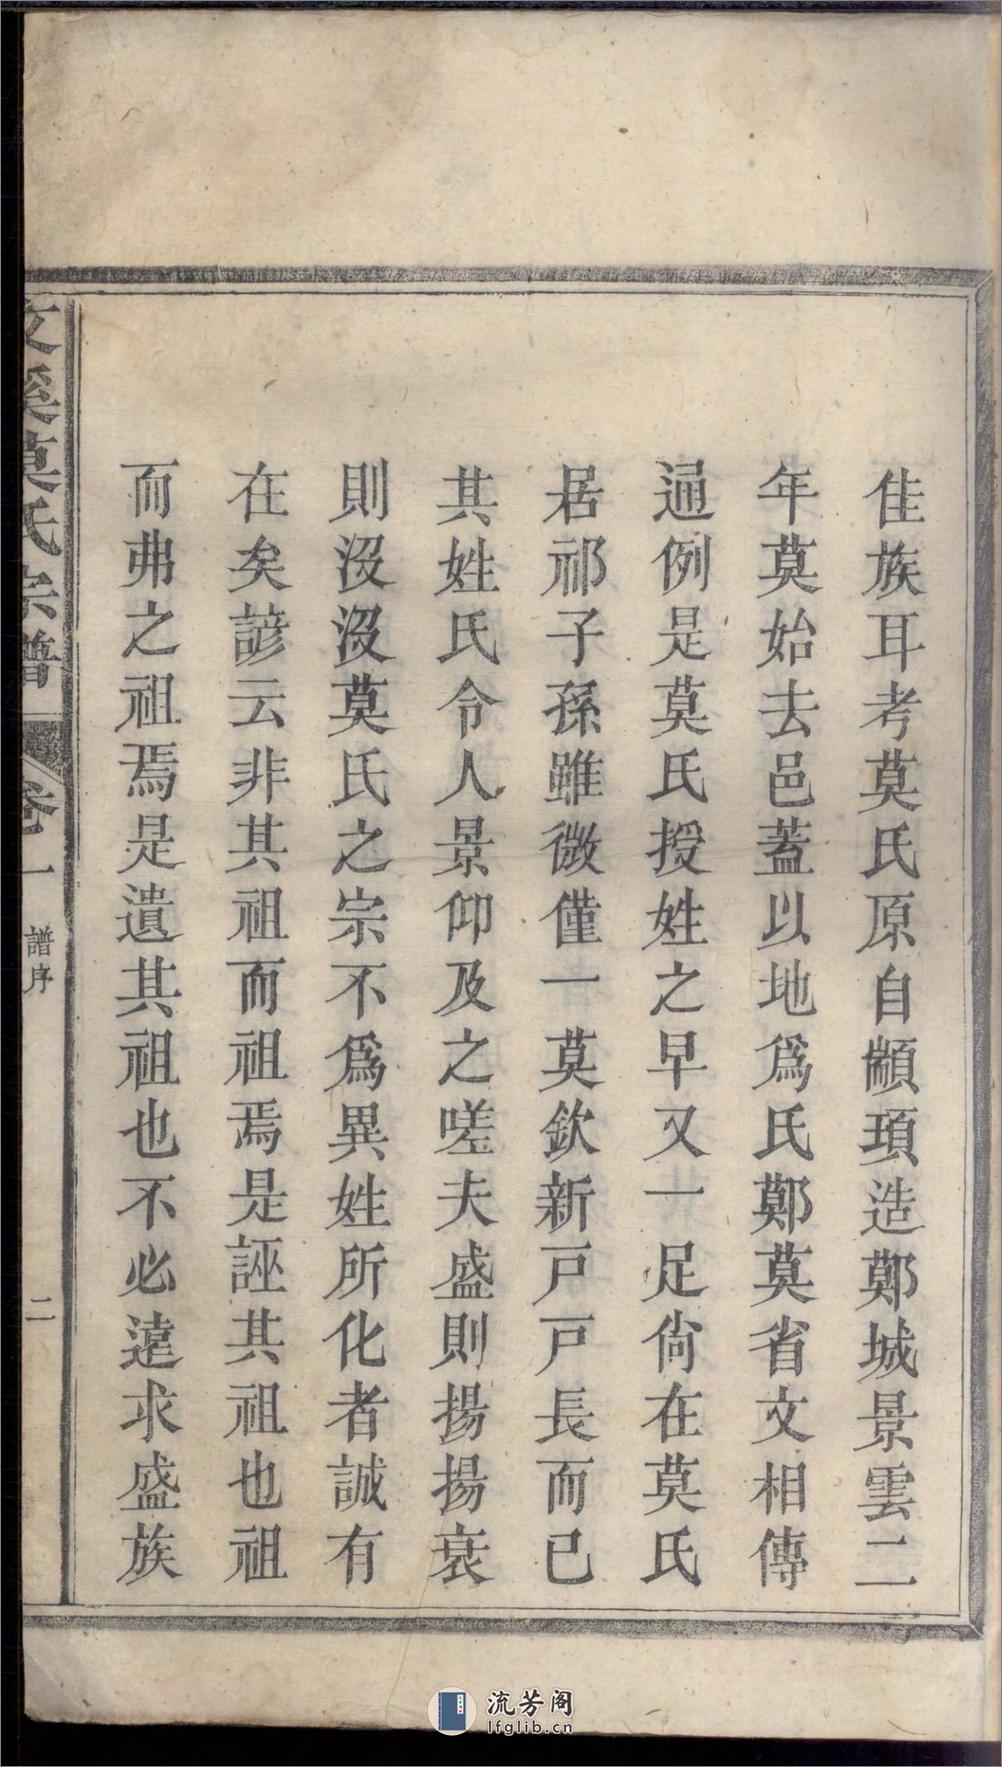 佳族耳考莫氏原自顓頊造鄭城景雲二
年莫始去邑蓋以地爲氏鄭莫省文相傳
通例是莫氏授姓之早又一足尙在莫氏
居祁子孫雖微僅一莫欽新戸戸長而已
其姓氏令人景仰及之嗟夫盛則揚揚衰
則沒沒莫氏之宗不爲異姓所化者誠有
在矣諺云非其祖而祖焉是誣其祖也祖
而弗之祖焉是遺其祖也不必遠求盛族
文溪莫氏宗譜 卷一 譜序 二
流芳阁
lfglib.cn